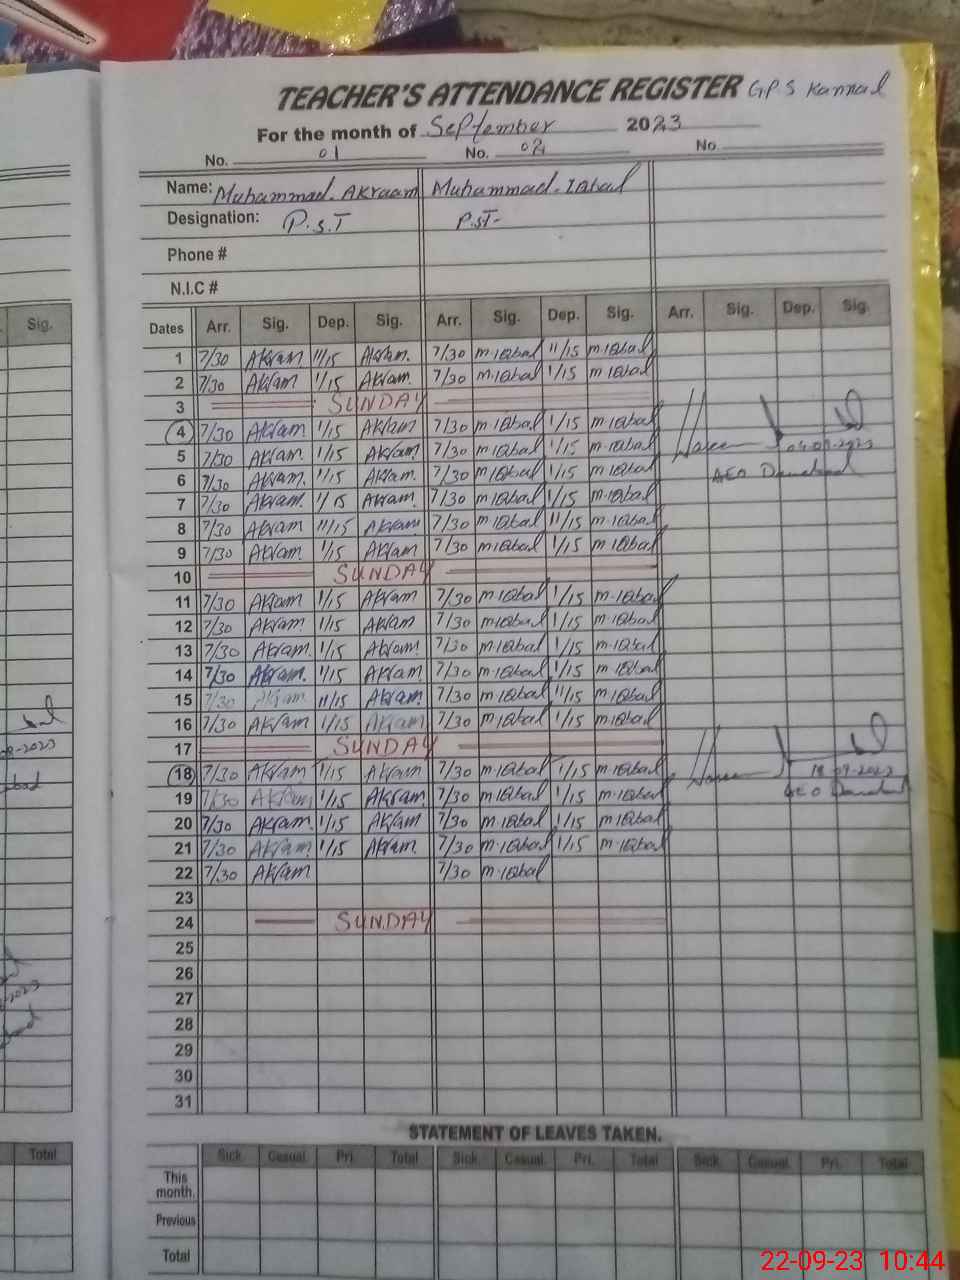 TEACHER'S ATTENDANCE REGISTER GPS Kannad
For the month of September 2023
No. 01 No. 02 No.
Name: Muhammad. Akraam Muhammad. Iqbal
Designation: P.S.T P.ST-
Phone #
N.I.C #
Sig.
Dates Arr. Sig. Dep. Sig. Arr. Sig. Dep. Sig. Arr. Sig. Dep. Sig.
1 7/30 Akram 11/15 Akram. 7/30 M.Iqbal 11/15 M.Iqbal
2 7/30 Akram 1/15 Akram. 7/30 M.Iqbal 1/15 M.Iqbal
3 SUNDAY
4 7/30 Akram 1/15 Akram 7/30 M.Iqbal 1/15 M.Iqbal
5 7/30 Akram. 1/15 Akram. 7/30 M.Iqbal 1/15 M.Iqbal 04-09-2023
6 7/30 Akram. 1/15 Akram. 7/30 M.Iqbal 1/15 M.Iqbal AEO
7 7/30 Akram. 1/15 Akram. 7/30 M.Iqbal 1/15 M.Iqbal
8 7/30 Akram 11/15 Akram 7/30 M.Iqbal 11/15 M.Iqbal
9 7/30 Akram. 1/15 Akram 7/30 M.Iqbal 1/15 M.Iqbal
10 SUNDAY
11 7/30 Akram 1/15 Akram 7/30 M.Iqbal 1/15 M.Iqbal
12 7/30 Akram. 1/15 Akram 7/30 M.Iqbal 1/15 M.Iqbal
13 7/30 Akram. 1/15 Akram. 7/30 M.Iqbal 1/15 M.Iqbal
14 7/30 Akram. 1/15 Akram. 7/30 M.Iqbal 1/15 M.Iqbal
15 7/30 Akram. 11/15 Akram. 7/30 M.Iqbal 11/15 M.Iqbal
16 7/30 Akram 1/15 Akram 7/30 M.Iqbal 1/15 M.Iqbal
17 SUNDAY
18 7/30 Akram 1/15 Akram 7/30 M.Iqbal 1/15 M.Iqbal 18 09-2023
19 7/30 Akram 1/15 Akram. 7/30 M.Iqbal 1/15 M.Iqbal AEO
20 7/30 Akram. 1/15 Akram 7/30 M.Iqbal 1/15 M.Iqbal
21 7/30 Akram 1/15 Akram. 7/30 M.Iqbal 1/15 M.Iqbal
22 7/30 Akram 7/30 M.Iqbal
23
24 SUNDAY
25
26
27
28
29
30
31
STATEMENT OF LEAVES TAKEN.
Total
Sick. Casual. Pri. Total Sick. Casual. Pri. Total Sick. Casual. Pri. Total
This
month.
Previous
Total
22-09-23 10:44